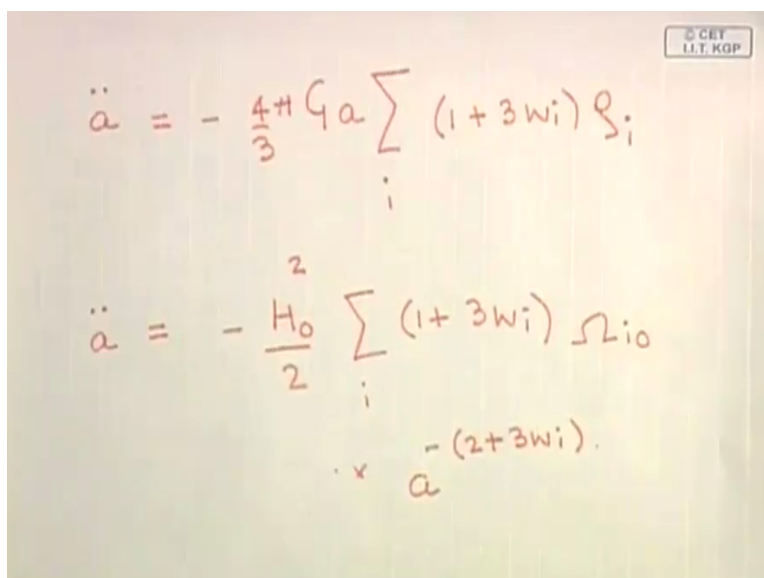 © CET
I.I.T. KGP
ä = - 4/3 π G a ∑ᵢ (1 + 3wi) ρi
ä = - H₀²/2 ∑ᵢ (1 + 3wi) Ωi0
× a^-(2+3wi).